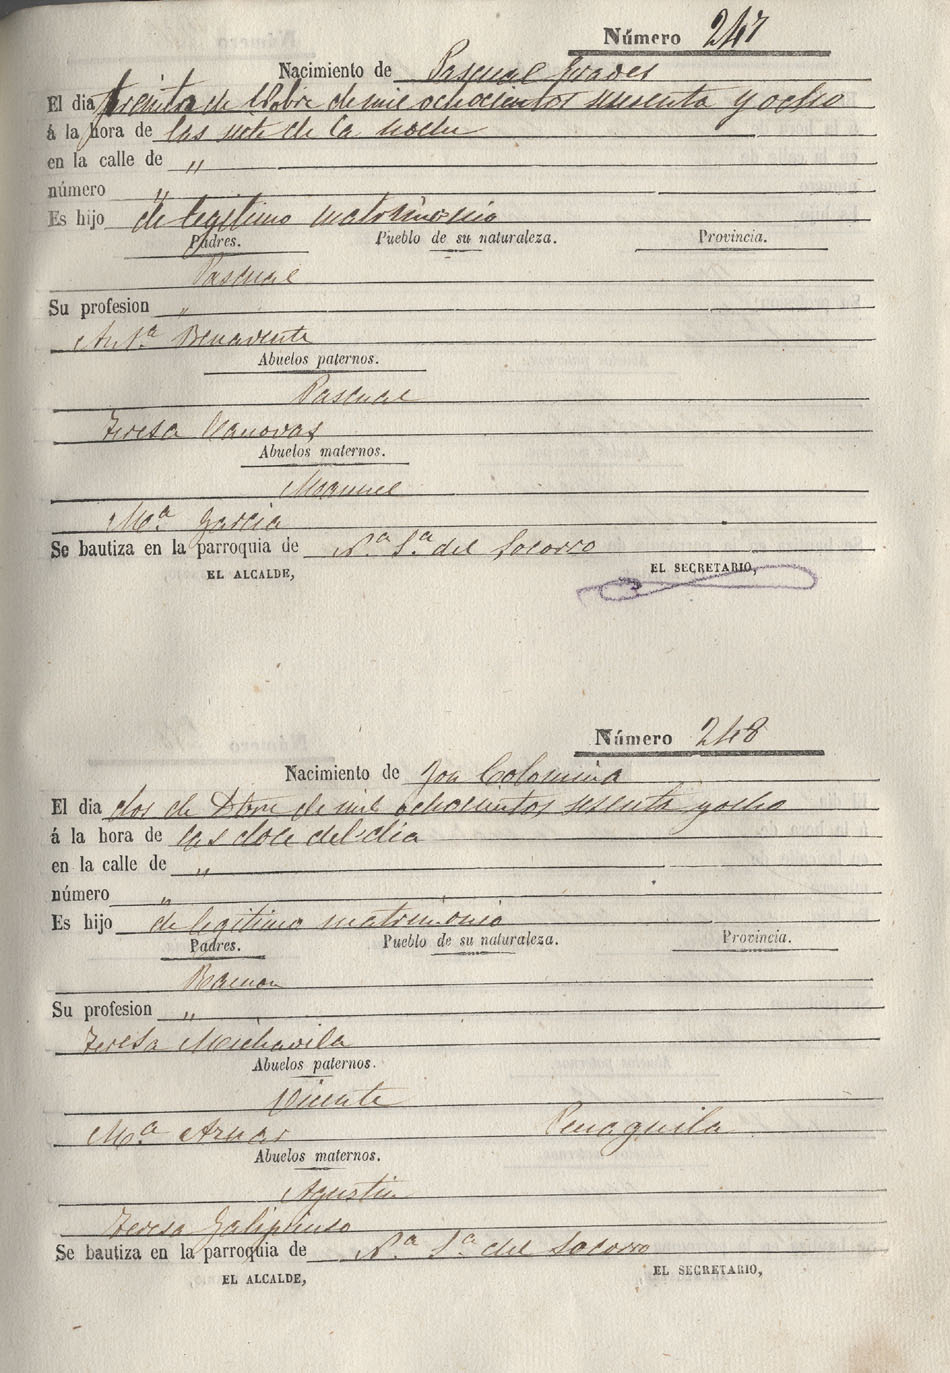 Número 247
Nacimiento de Pascual Grades
El dia treinta de 8bre de mil ochocientos sesenta y ocho
á la hora de las siete de la noche
en la calle de "
número "
Es hijo de legitimo matrimonio
Padres. Pueblo de su naturaleza. Provincia.
Pascual
Su profesion "
Ant.ª Benavente
Abuelos paternos.
Pascual
Teresa Canovas
Abuelos maternos.
Manuel
M.ª Garcia
Se bautiza en la parroquia de N.ª S.ª del Socorro
EL ALCALDE, EL SECRETARIO,
Número 248
Nacimiento de Colomina
El dia dos de de mil ochocientos sesenta y ocho
á la hora de las doce del dia
en la calle de "
número "
Es hijo de legitimo matrimonio
Padres. Pueblo de su naturaleza. Provincia.
Ramon
Su profesion "
Teresa Michavila
Abuelos paternos.
Vicente
M.ª Aznar Penaguila
Abuelos maternos.
Agustin
Teresa Galipienso
Se bautiza en la parroquia de N.ª S.ª del Socorro
EL ALCALDE, EL SECRETARIO,